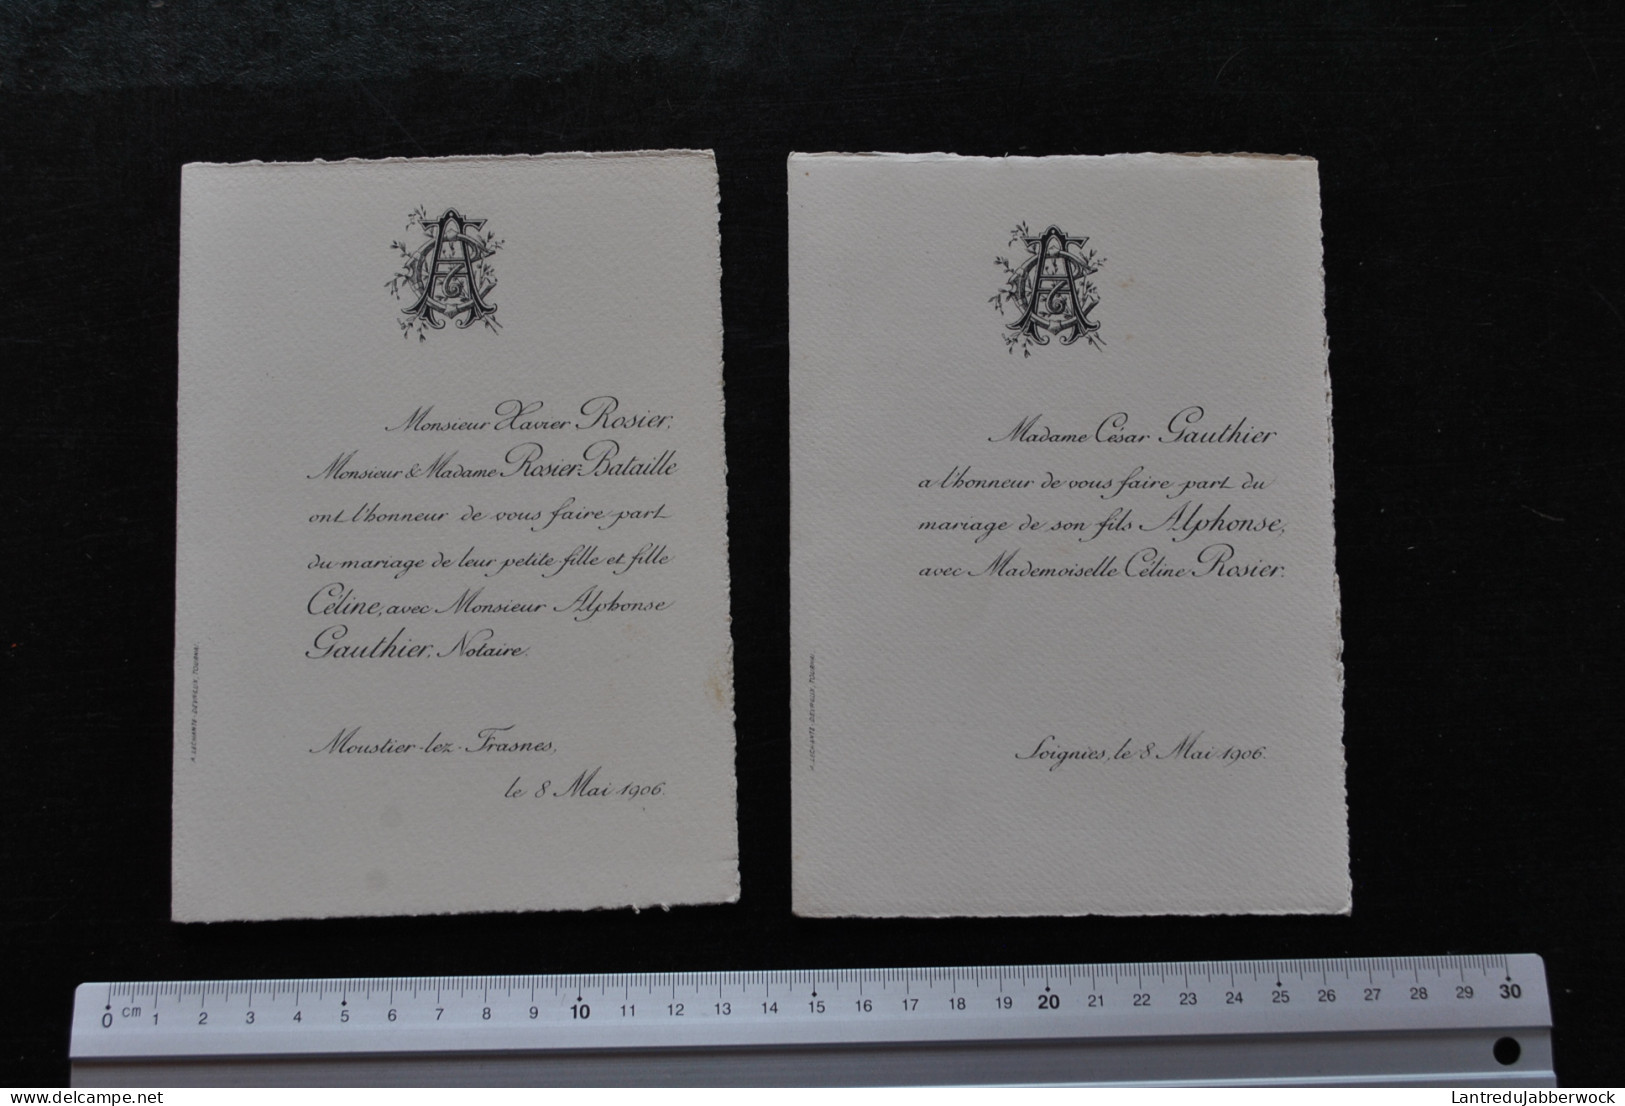 Monsieur Xavier Rosier,
Monsieur & Madame Rosier-Bataille
ont l'honneur de vous faire part
du mariage de leur petite-fille et fille
Céline, avec Monsieur Alphonse
Gauthier, Notaire.
Moustier-lez-Frasnes,
le 8 Mai 1906.
A. LECHANTE-DEVREUX, TOURNAI.
Madame César Gauthier
a l'honneur de vous faire part du
mariage de son fils Alphonse,
avec Mademoiselle Céline Rosier.
Soignies, le 8 Mai 1906.
A. LECHANTE-DEVREUX, TOURNAI.
0 cm 1 2 3 4 5 6 7 8 9 10 11 12 13 14 15 16 17 18 19 20 21 22 23 24 25 26 27 28 29 30
delcampe.net
LantreduJabberwock